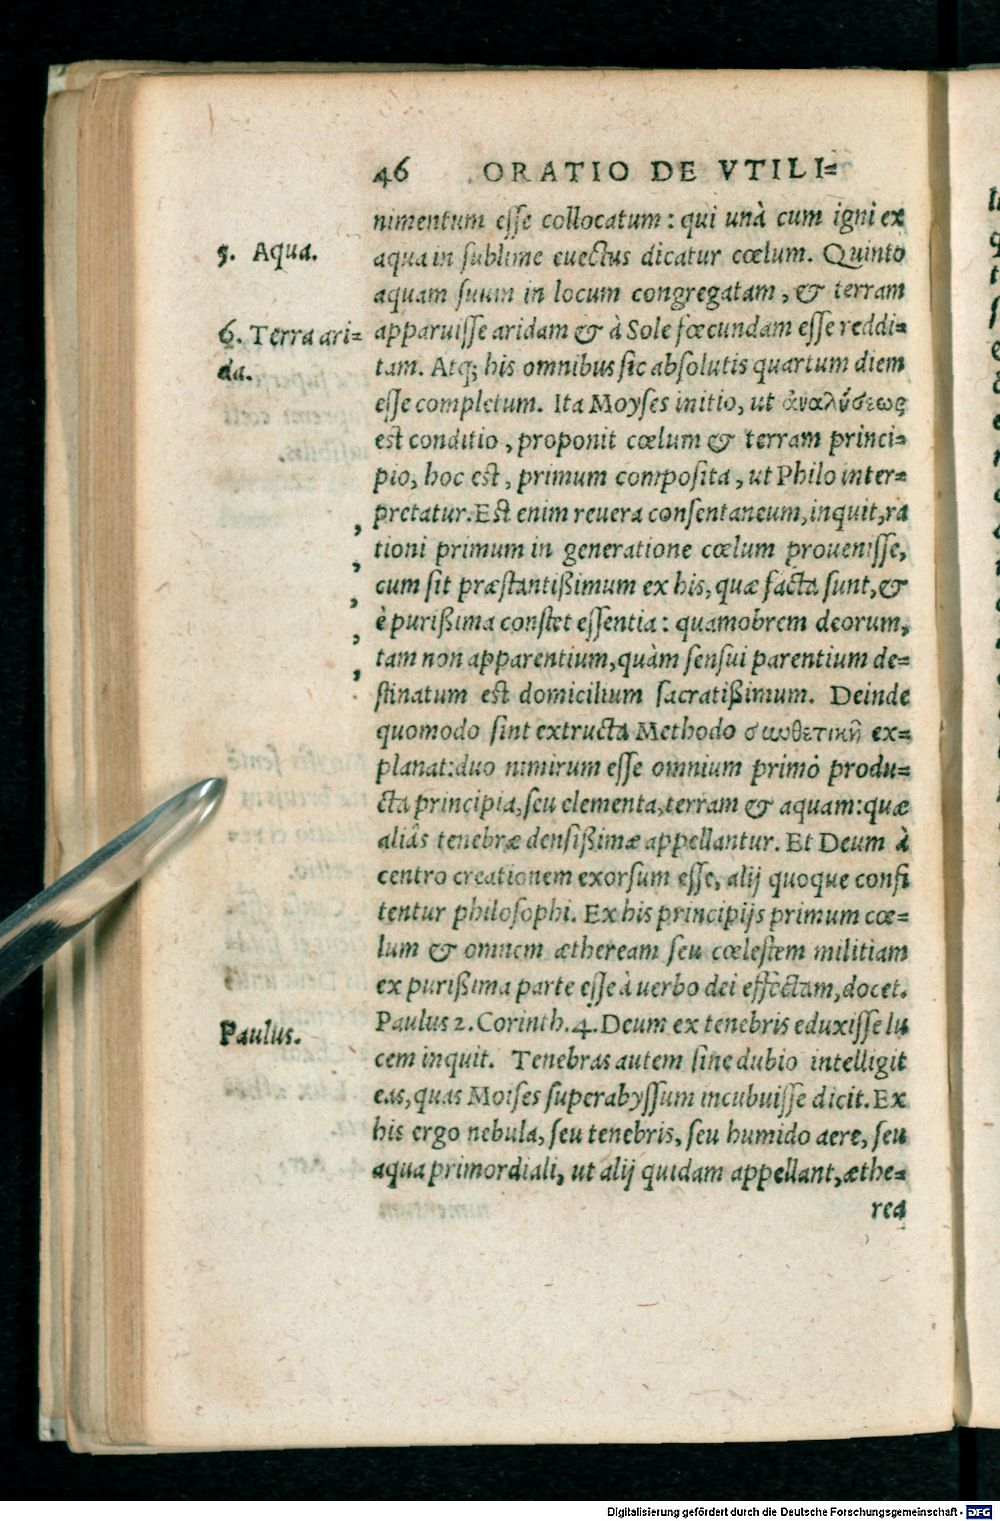 46 ORATIO DE VTILI=
nimentum eſſe collocatum: qui unà cum igni ex
5. Aqua.
aqua in ſublime euectus dicatur cœlum. Quinto
aquam ſuum in locum congregatam, & terram
6. Terra ari=
da.
apparuiſſe aridam & à Sole fœcundam eſſe reddi=
tam. Atq; his omnibus ſic abſolutis quartum diem
eſſe completum. Ita Moyſes initio, ut ἀναλύσεως
est conditio, proponit cœlum & terram princi=
pio, hoc est, primum compoſita, ut Philo inter=
pretatur. Est enim reuera conſentaneum, inquit, ra
tioni primum in generatione cœlum proueniſſe,
cum ſit præstantißimum ex his, quæ facta sunt, &
è purißima constet eſſentia: quamobrem deorum,
tam non apparentium, quàm ſenſui parentium de=
stinatum est domicilium ſacratißimum. Deinde
quomodo ſint extructa Methodo συνθετικῇ ex=
planat: duo nimirum eſſe omnium primò produ=
cta principia, ſeu elementa, terram & aquam: quæ
aliâs tenebræ denſißimæ appellantur. Et Deum à
centro creationem exorſum eſſe, alij quoque confi
tentur philoſophi. Ex his principijs primum cœ=
lum & omnem ætheream ſeu cœlestem militiam
ex purißima parte eſſe à uerbo dei effectam, docet.
Paulus.
Paulus 2. Corinth. 4. Deum ex tenebris eduxiſſe lu
cem inquit. Tenebras autem ſine dubio intelligit
eas, quas Moiſes ſuper abyſſum incubuiſſe dicit. Ex
his ergo nebula, ſeu tenebris, ſeu humido aere, ſeu
aqua primordiali, ut alij quidam appellant, æthe=
rea
Digitalisierung gefördert durch die Deutsche Forschungsgemeinschaft - DFG